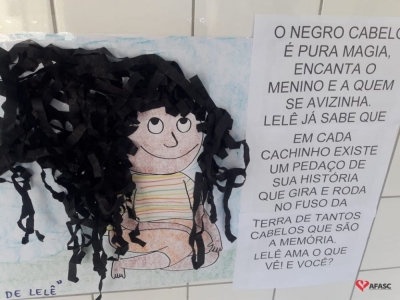 O NEGRO CABELO
É PURA MAGIA,
ENCANTA O
MENINO E A QUEM
SE AVIZINHA.
LELÊ JÁ SABE QUE
EM CADA
CACHINHO EXISTE
UM PEDAÇO DE
SUA HISTÓRIA
QUE GIRA E RODA
NO FUSO DA
TERRA DE TANTOS
CABELOS QUE SÃO
A MEMÓRIA.
LELÊ AMA O QUE
VÊ! E VOCÊ?
DE LELÊ"
AFASC